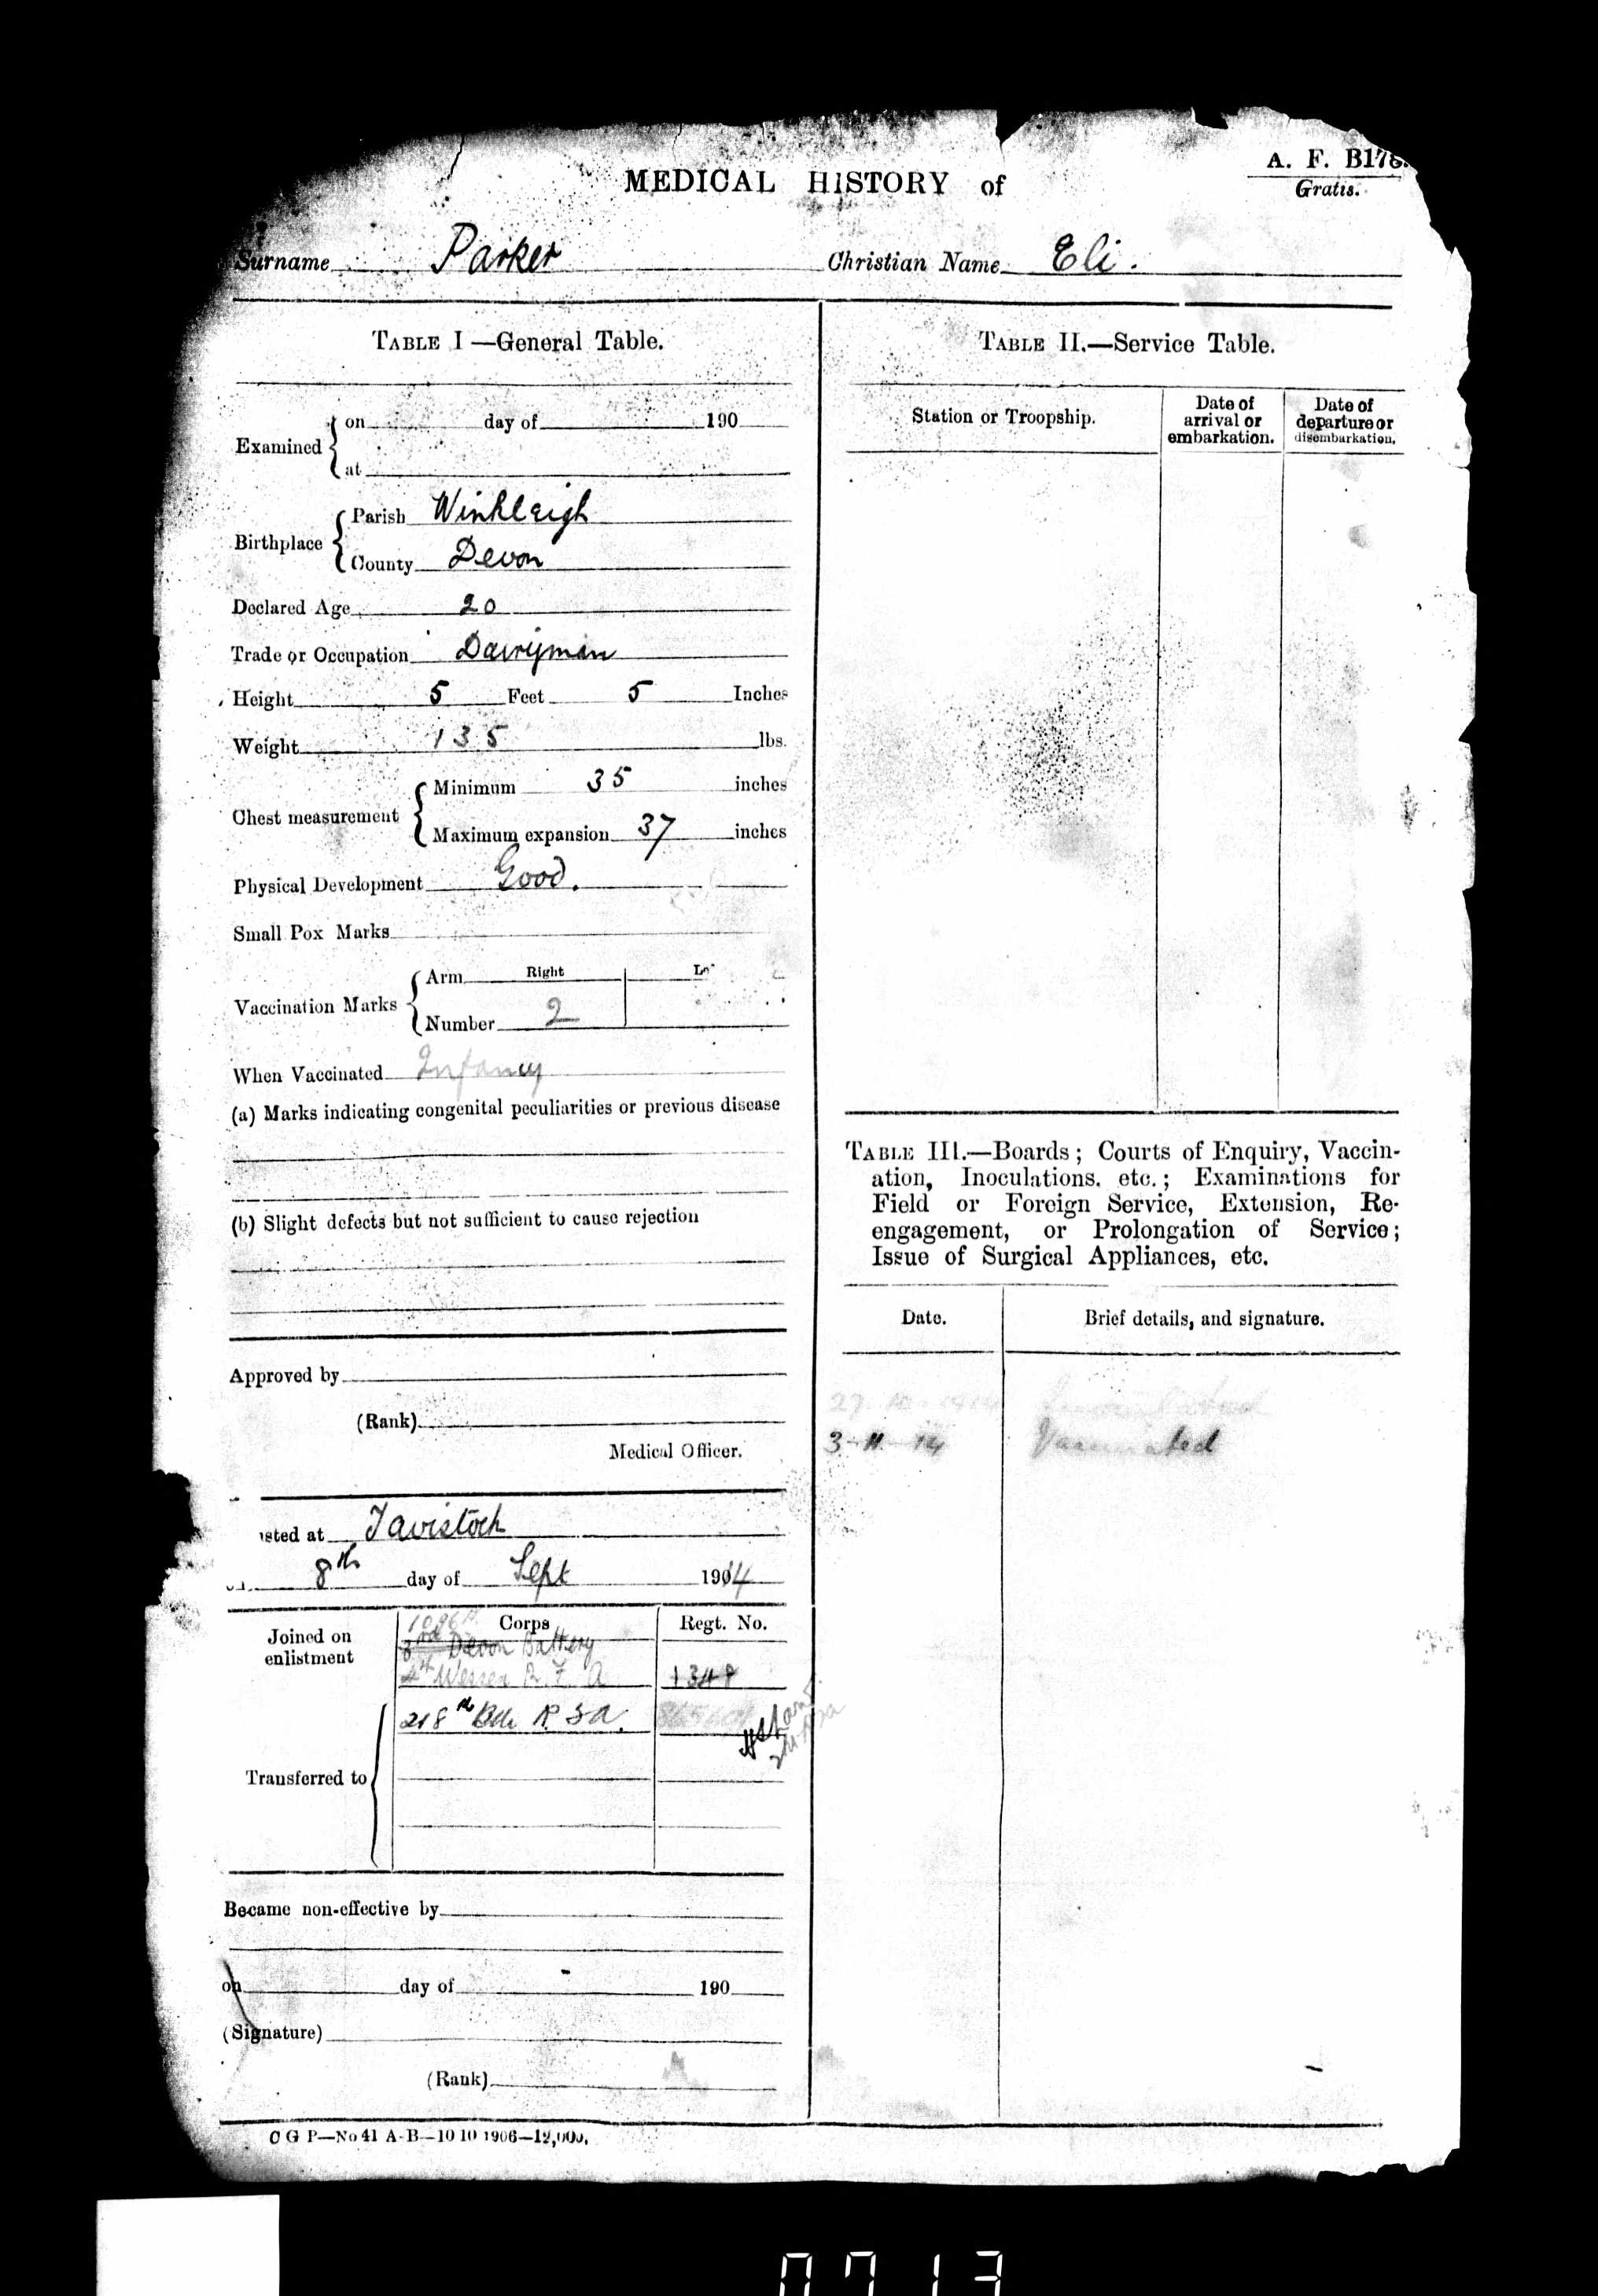 A. F. B178.
Gratis.
MEDICAL HISTORY of
Surname Parker Christian Name Eli.
TABLE I—General Table.
Examined { on day of 190
at
Birthplace { Parish Winkleigh
County Devon
Declared Age 20
Trade or Occupation Dairyman
Height 5 Feet 5 Inches
Weight 135 lbs.
Chest measurement { Minimum 35 inches
Maximum expansion 37 inches
Physical Development Good.
Small Pox Marks
Vaccination Marks { Arm Right
Number 2
When Vaccinated Infancy
(a) Marks indicating congenital peculiarities or previous disease
(b) Slight defects but not sufficient to cause rejection
Approved by
(Rank)
Medical Officer.
isted at Tavistock
8th day of Sept 1914
Corps Regt. No.
Joined on enlistment
3rd Devon Battery
4th Wessex R. F. A 1348
Transferred to { 218th Bde R.F.A.
Became non-effective by
on day of 190
(Signature)
(Rank)
C G P—No 41 A-B—10 10 1906—12,000.
TABLE II.—Service Table.
Station or Troopship. Date of arrival or embarkation. Date of departure or disembarkation.
TABLE III.—Boards; Courts of Enquiry, Vaccin-
ation, Inoculations, etc.; Examinations for
Field or Foreign Service, Extension, Re-
engagement, or Prolongation of Service;
Issue of Surgical Appliances, etc.
Date. Brief details, and signature.
3-11-14 Vaccinated
0713